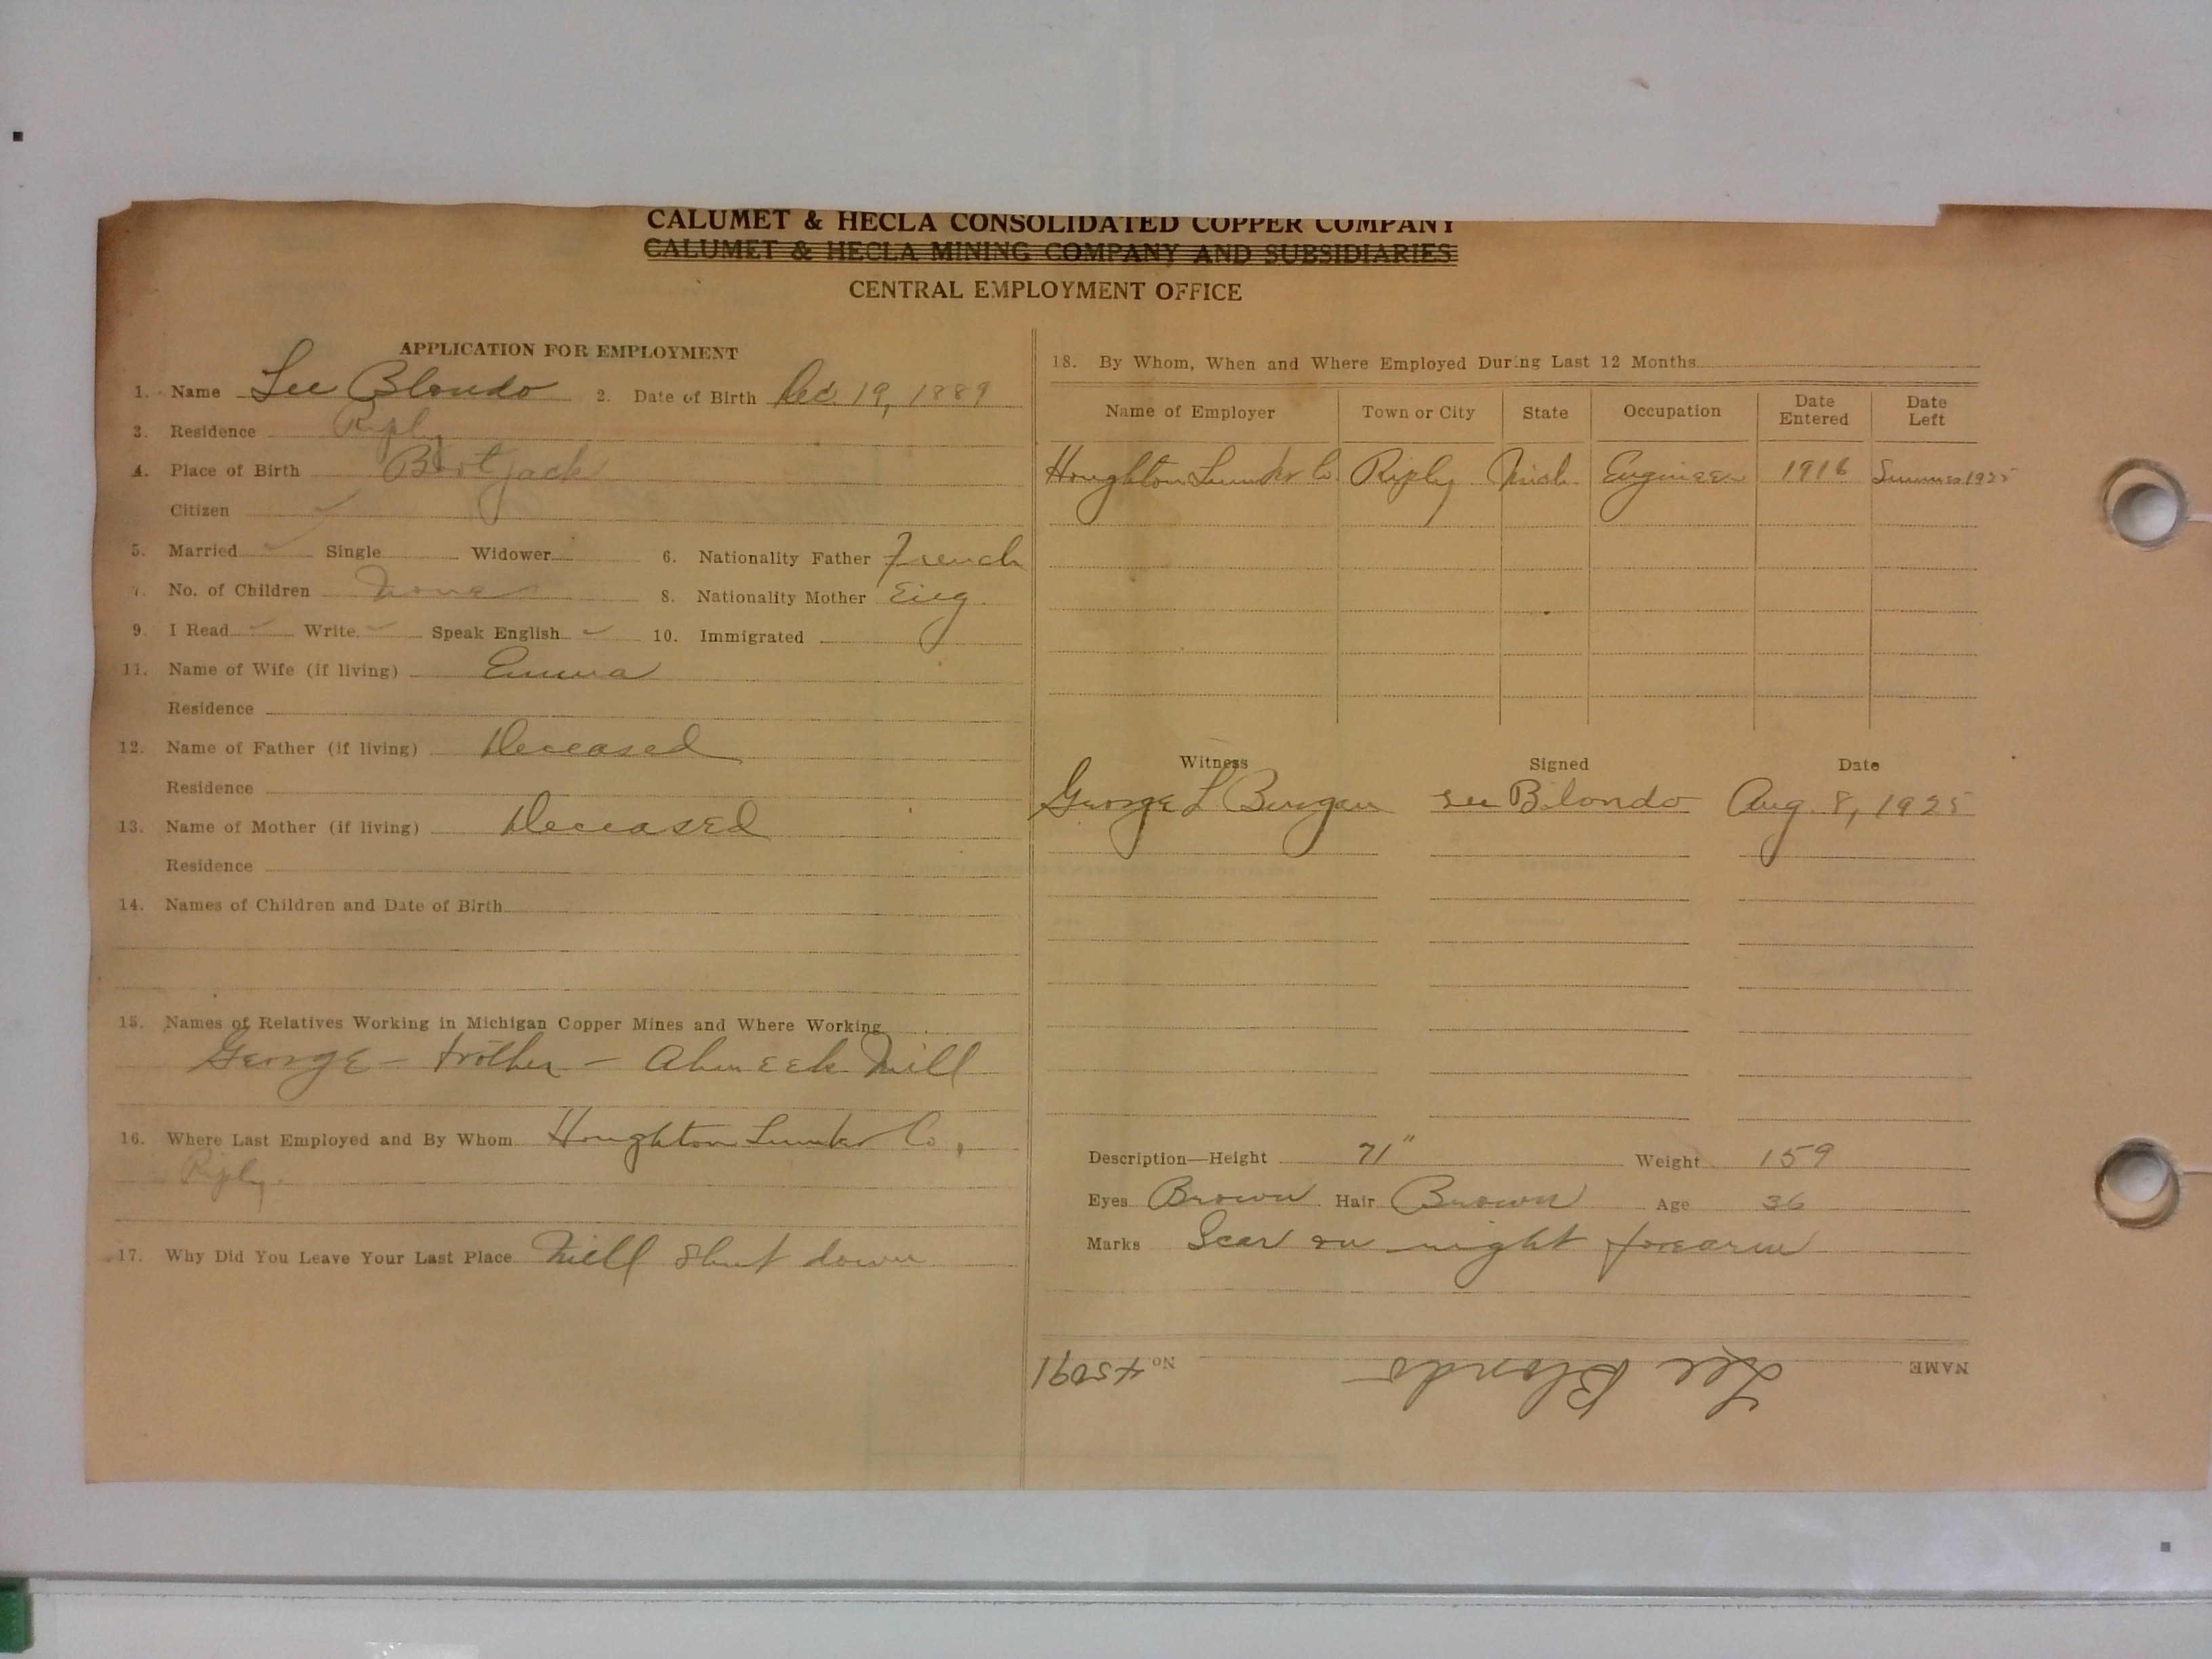 CALUMET & HECLA CONSOLIDATED COPPER COMPANY
CALUMET & HECLA MINING COMPANY AND SUBSIDIARIES
CENTRAL EMPLOYMENT OFFICE
APPLICATION FOR EMPLOYMENT
1. Name Lee Blondo 2. Date of Birth Dec. 19, 1889
3. Residence Riply
4. Place of Birth Bootjack
Citizen ✓
5. Married ✓ Single Widower 6. Nationality Father French
7. No. of Children None 8. Nationality Mother Eng.
9. I Read ✓ Write ✓ Speak English ✓ 10. Immigrated
11. Name of Wife (if living) Emma
Residence
12. Name of Father (if living) Deceased
Residence
13. Name of Mother (if living) Deceased
Residence
14. Names of Children and Date of Birth
15. Names of Relatives Working in Michigan Copper Mines and Where Working
George - brother - Ahmeek Mill
16. Where Last Employed and By Whom Houghton Lumber Co,
Riply.
17. Why Did You Leave Your Last Place Mill shut down
18. By Whom, When and Where Employed During Last 12 Months
Name of Employer Town or City State Occupation Date Entered Date Left
Houghton Lumber Co. Riply Mich. Engineer 1916 Summer 1925
Witness Signed Date
George L Burgan Lee Blondo Aug. 8, 1925
Description—Height 71" Weight 159
Eyes Brown Hair Brown Age 36
Marks Scar on right forearm
NAME Lee Blondo No. 45091